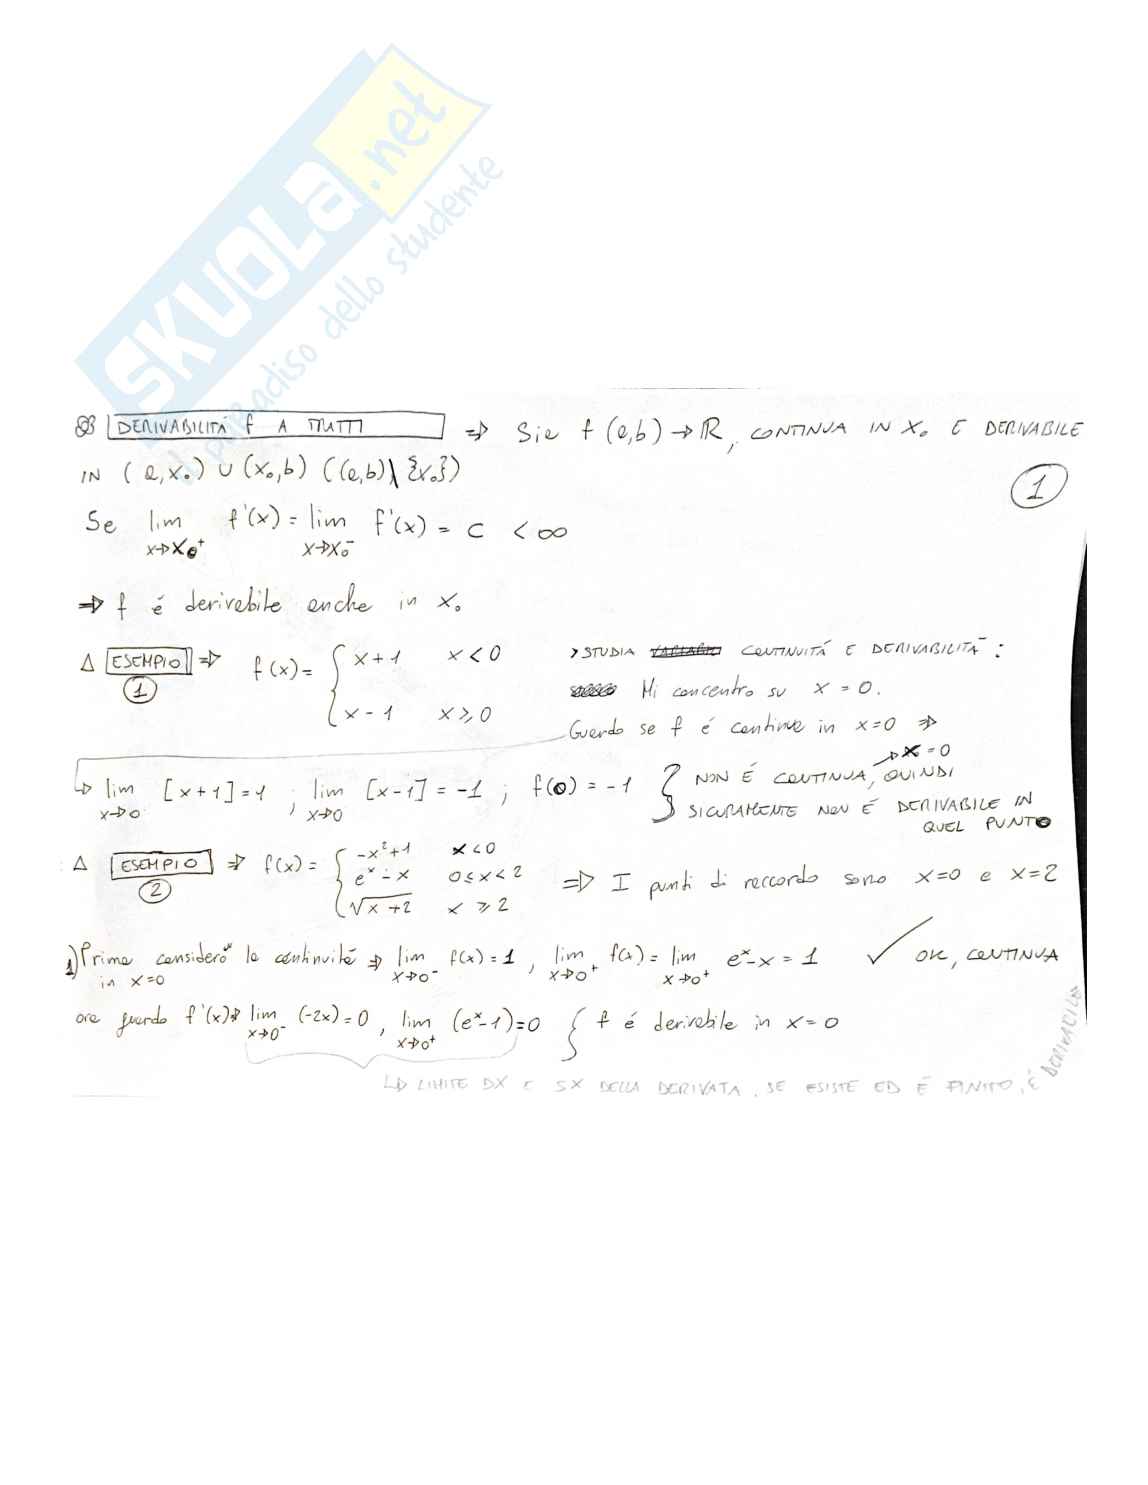 SKUOLA.net
il paradiso dello studente
DERIVABILITÁ f A TRATTI ⇒ Sia f (a,b) → ℝ, CONTINUA IN X₀ E DERIVABILE
IN (a,x₀) ∪ (x₀,b) ((a,b)\{x₀})
1
Se lim x→x₀⁺ f'(x) = lim x→x₀⁻ f'(x) = c < ∞
⇒ f é derivabile anche in x₀
Δ ESEMPIO 1 ⇒ f(x) = { x+1 x<0
x-1 x⩾0
> STUDIA CONTINUITÁ E DERIVABILITÁ:
Mi concentro su x = 0.
Guardo se f é continua in x=0 ⇒
↳ lim x→0 [x+1] = 1 ; lim x→0 [x-1] = -1 ; f(0) = -1 } NON É CONTINUA, QUINDI → x=0
SICURAMENTE NON É DERIVABILE IN
QUEL PUNTO
Δ ESEMPIO 2 ⇒ f(x) = { -x²+1 x<0
eˣ-x 0≤x<2
√x+2 x⩾2
⇒ I punti di raccordo sono x=0 e x=2
1) Prima considero la continuitá ⇒ lim x→0⁻ f(x) = 1 , lim x→0⁺ f(x) = lim x→0⁺ eˣ-x = 1 ✓ OK, CONTINUA
in x=0
ora guardo f'(x) ⇒ lim x→0⁻ (-2x) = 0 , lim x→0⁺ (eˣ-1) = 0 { f é derivabile in x=0
↳ LIMITE DX E SX DELLA DERIVATA, SE ESISTE ED É FINITO, É